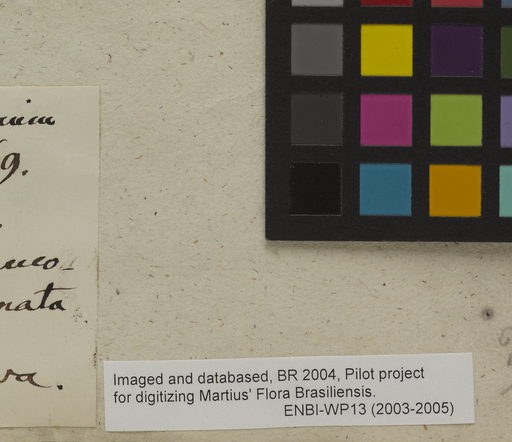 9.
Imaged and databased, BR 2004, Pilot project
for digitizing Martius' Flora Brasiliensis.
ENBI-WP13 (2003-2005)